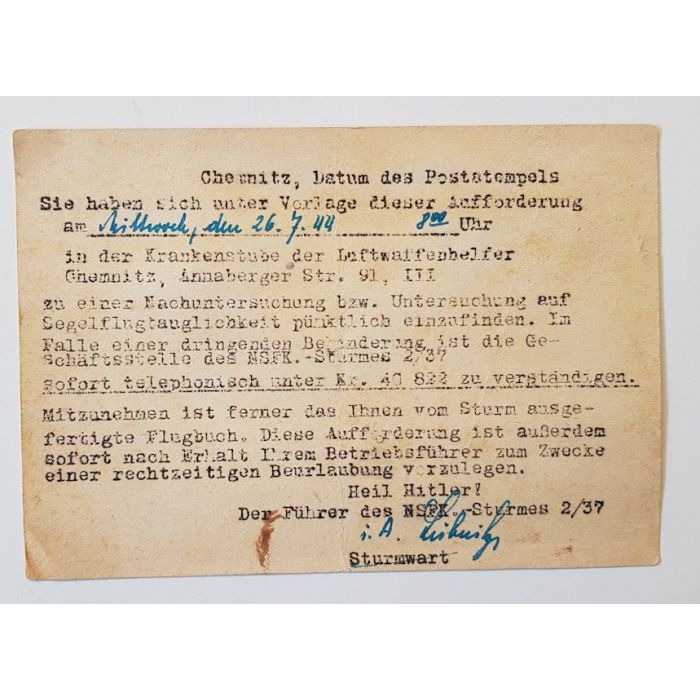 Chemnitz, Datum des Poststempels
Sie haben sich unter Vorlage dieser Aufforderung
am Mittwoch, den 26.7.44 8⁰⁰ Uhr
in der Krankenstube der Luftwaffenhelfer
Chemnitz, Annaberger Str. 91, III
zu einer Nachuntersuchung bzw. Untersuchung auf
Segelflugtauglichkeit pünktlich einzufinden. Im
Falle einer dringenden Behinderung ist die Ge-
schäftsstelle des NSFK.-Sturmes 2/37
sofort telephonisch unter Nr. 40 822 zu verständigen.
Mitzunehmen ist ferner das Ihnen vom Sturm ausge-
fertigte Flugbuch. Diese Aufforderung ist außerdem
sofort nach Erhalt Ihrem Betriebsführer zum Zwecke
einer rechtzeitigen Beurlaubung vorzulegen.
Heil Hitler!
Der Führer des NSFK.-Sturmes 2/37
i.A.
Sturmwart